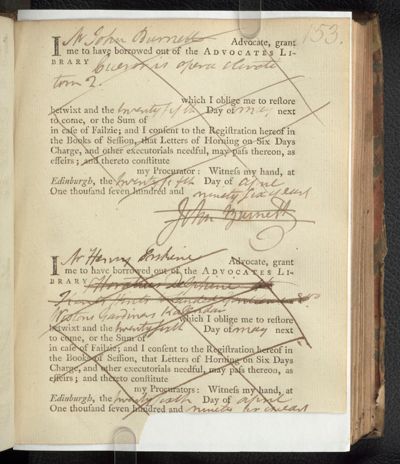 153.
I Mr John Burnett Advocate, grant
me to have borrowed out of the ADVOCATES LI-
BRARY Ciceronis opera
tom 2.
which I oblige me to restore
betwixt and the twenty fifth Day of may next
to come, or the Sum of
in case of Failzie; and I consent to the Registration hereof in
the Books of Session, that Letters of Horning on Six Days
Charge, and other executorials needful, may pass thereon, as
effeirs; and thereto constitute
my Procurator: Witness my hand, at
Edinburgh, the twenty fifth Day of April
One thousand seven hundred and ninety six years
John Burnett
I Mr Henry Erskine Advocate, grant
me to have borrowed out of the ADVOCATES LI-
BRARY
Westons Gardiners Kalendar
which I oblige me to restore
betwixt and the twenty sixth Day of may next
to come, or the Sum of
in case of Failzie; and I consent to the Registration hereof in
the Books of Session, that Letters of Horning on Six Days
Charge, and other executorials needful, may pass thereon, as
effeirs; and thereto constitute
my Procurators: Witness my hand, at
Edinburgh, the twenty sixth Day of April
One thousand seven hundred and ninety six years